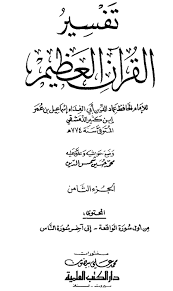 تفسير
القرآن العظيم
للإمام الحافظ عماد الدين أبي الفداء إسماعيل بن عمر
ابن كثير الدمشقي
المتوفى سنة ٧٧٤ هـ
وضع حواشيه وعلق عليه
محمد حسين شمس الدين
الجزء الثامن
المحتوى:
من أول سورة الواقعة - إلى آخر سورة الناس
منشورات
محمد علي بيضون
دار الكتب العلمية